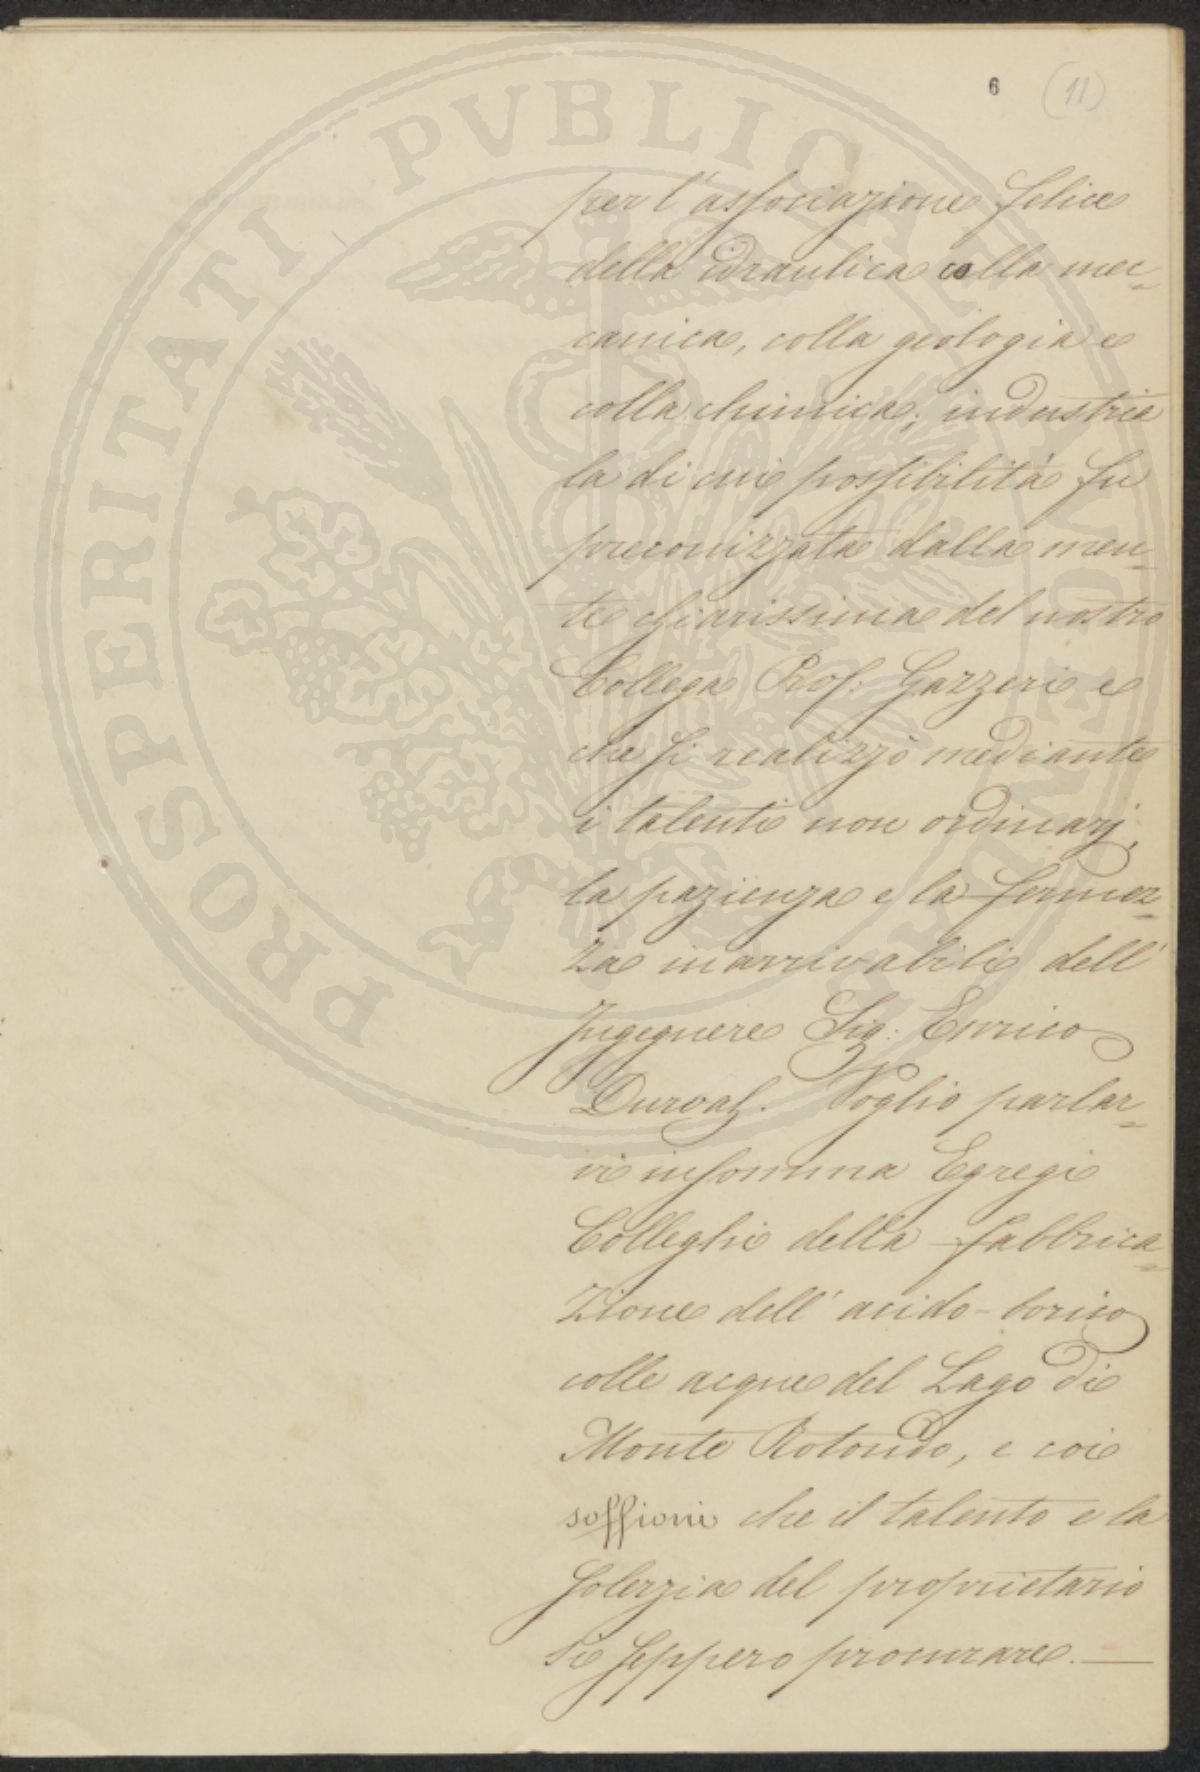 6 (11)
per l'associazione felice
della idraulica colla mec-
canica, colla geologia e
colla chimica; industria
la di cui possibilità fu
preconizzata dalla men-
te chiarissima del nostro
Collega Prof. Gazzeri e
che si realizzò mediante
i talenti non ordinarj,
la pazienza e la fermez-
za inarrivabili dell'
Ingegnere Sig: Enrico
Durval. Voglio parlar-
vi insomma Egregi
Colleghi della fabbrica-
zione dell'acido-borico
colle acque del Lago di
Monte Rotondo, e coi
soffioni che il talento e la
solerzia del proprietario
si seppero procurare. —
PROSPERITATI PVBLICAE AVGENDAE